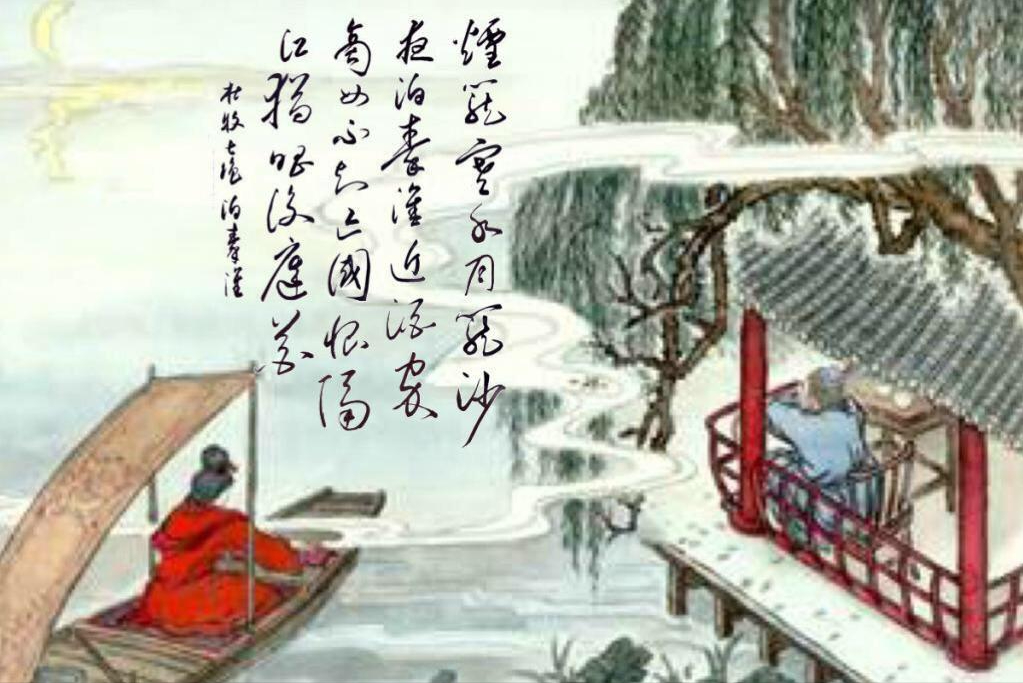 煙籠寒水月籠沙
夜泊秦淮近酒家
商女不知亡國恨隔
江猶唱後庭花
杜牧七絕泊秦淮